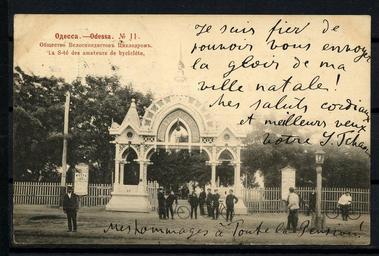 Одесса.—Odessa. № 11.
Общество Велосипедистовъ Циклодромъ.
La S-té des amateurs de bycicléte.
Je suis fier de
pouvoir vous envoyer
la gloir de ma
ville natale!
Mes saluts cordiaux
et meilleurs vœux
Votre
Mes hommages à toute la Pension!